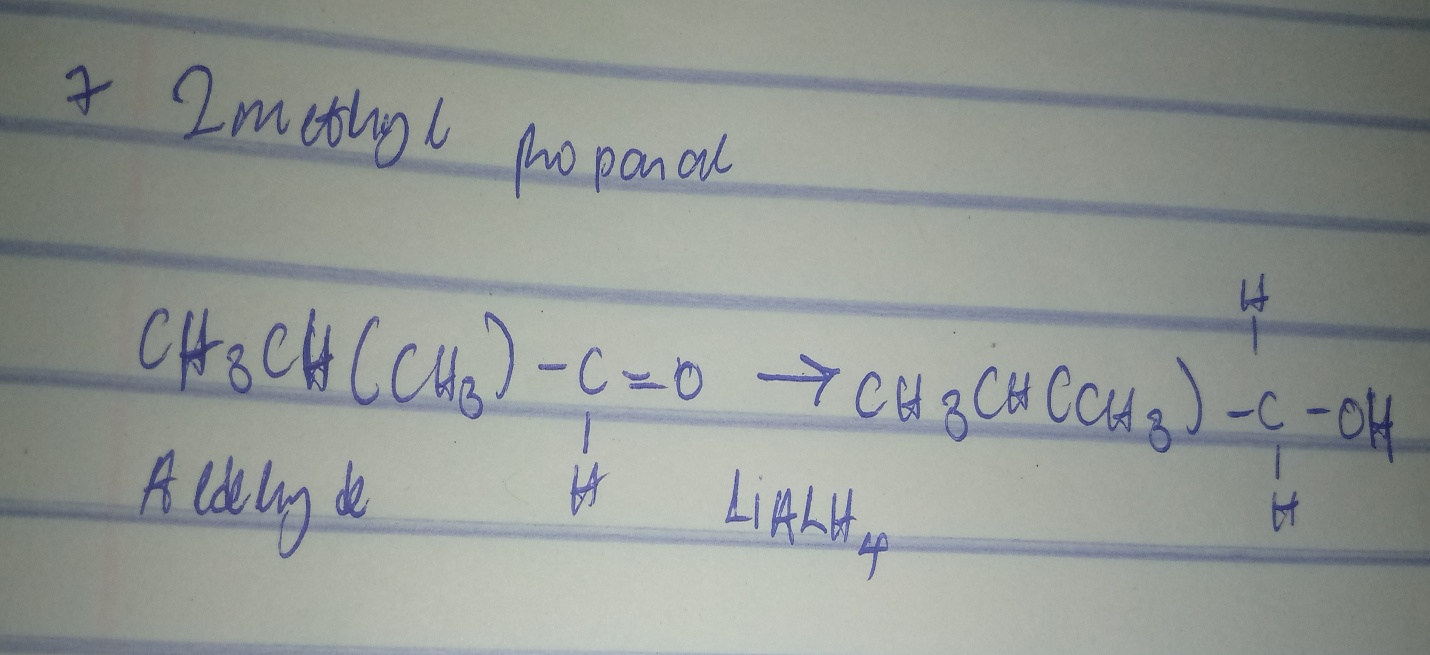 7 2methyl propanal
H
CH₃CH(CH₃)-C=O → CH₃CH(CH₃)-C-OH
Aldehyde H LiALH₄ H